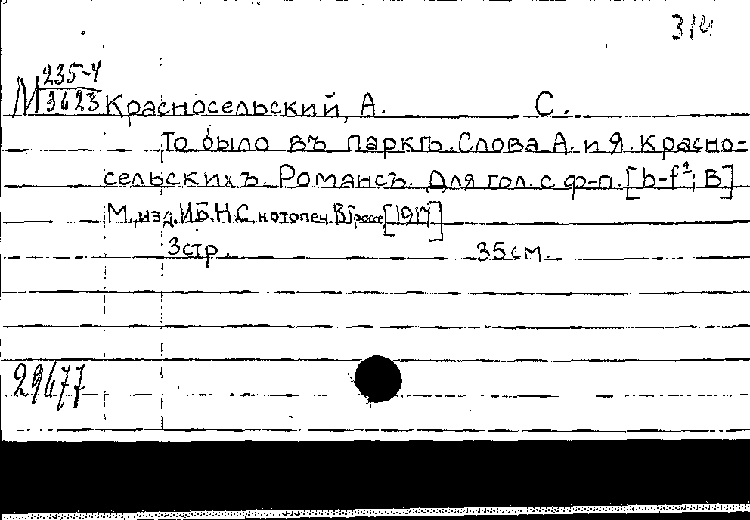 314
М 235-4
3623 Красносельский, А. С.
То было въ паркѣ. Слова А. и Я. Красно-
сельскихъ. Романсъ. Для гол. с ф-п. [b-f²; B]
М., изд. И.Б.Н.С, нотопеч. В Гроссе [1917]
3 стр. 35 см.
29677